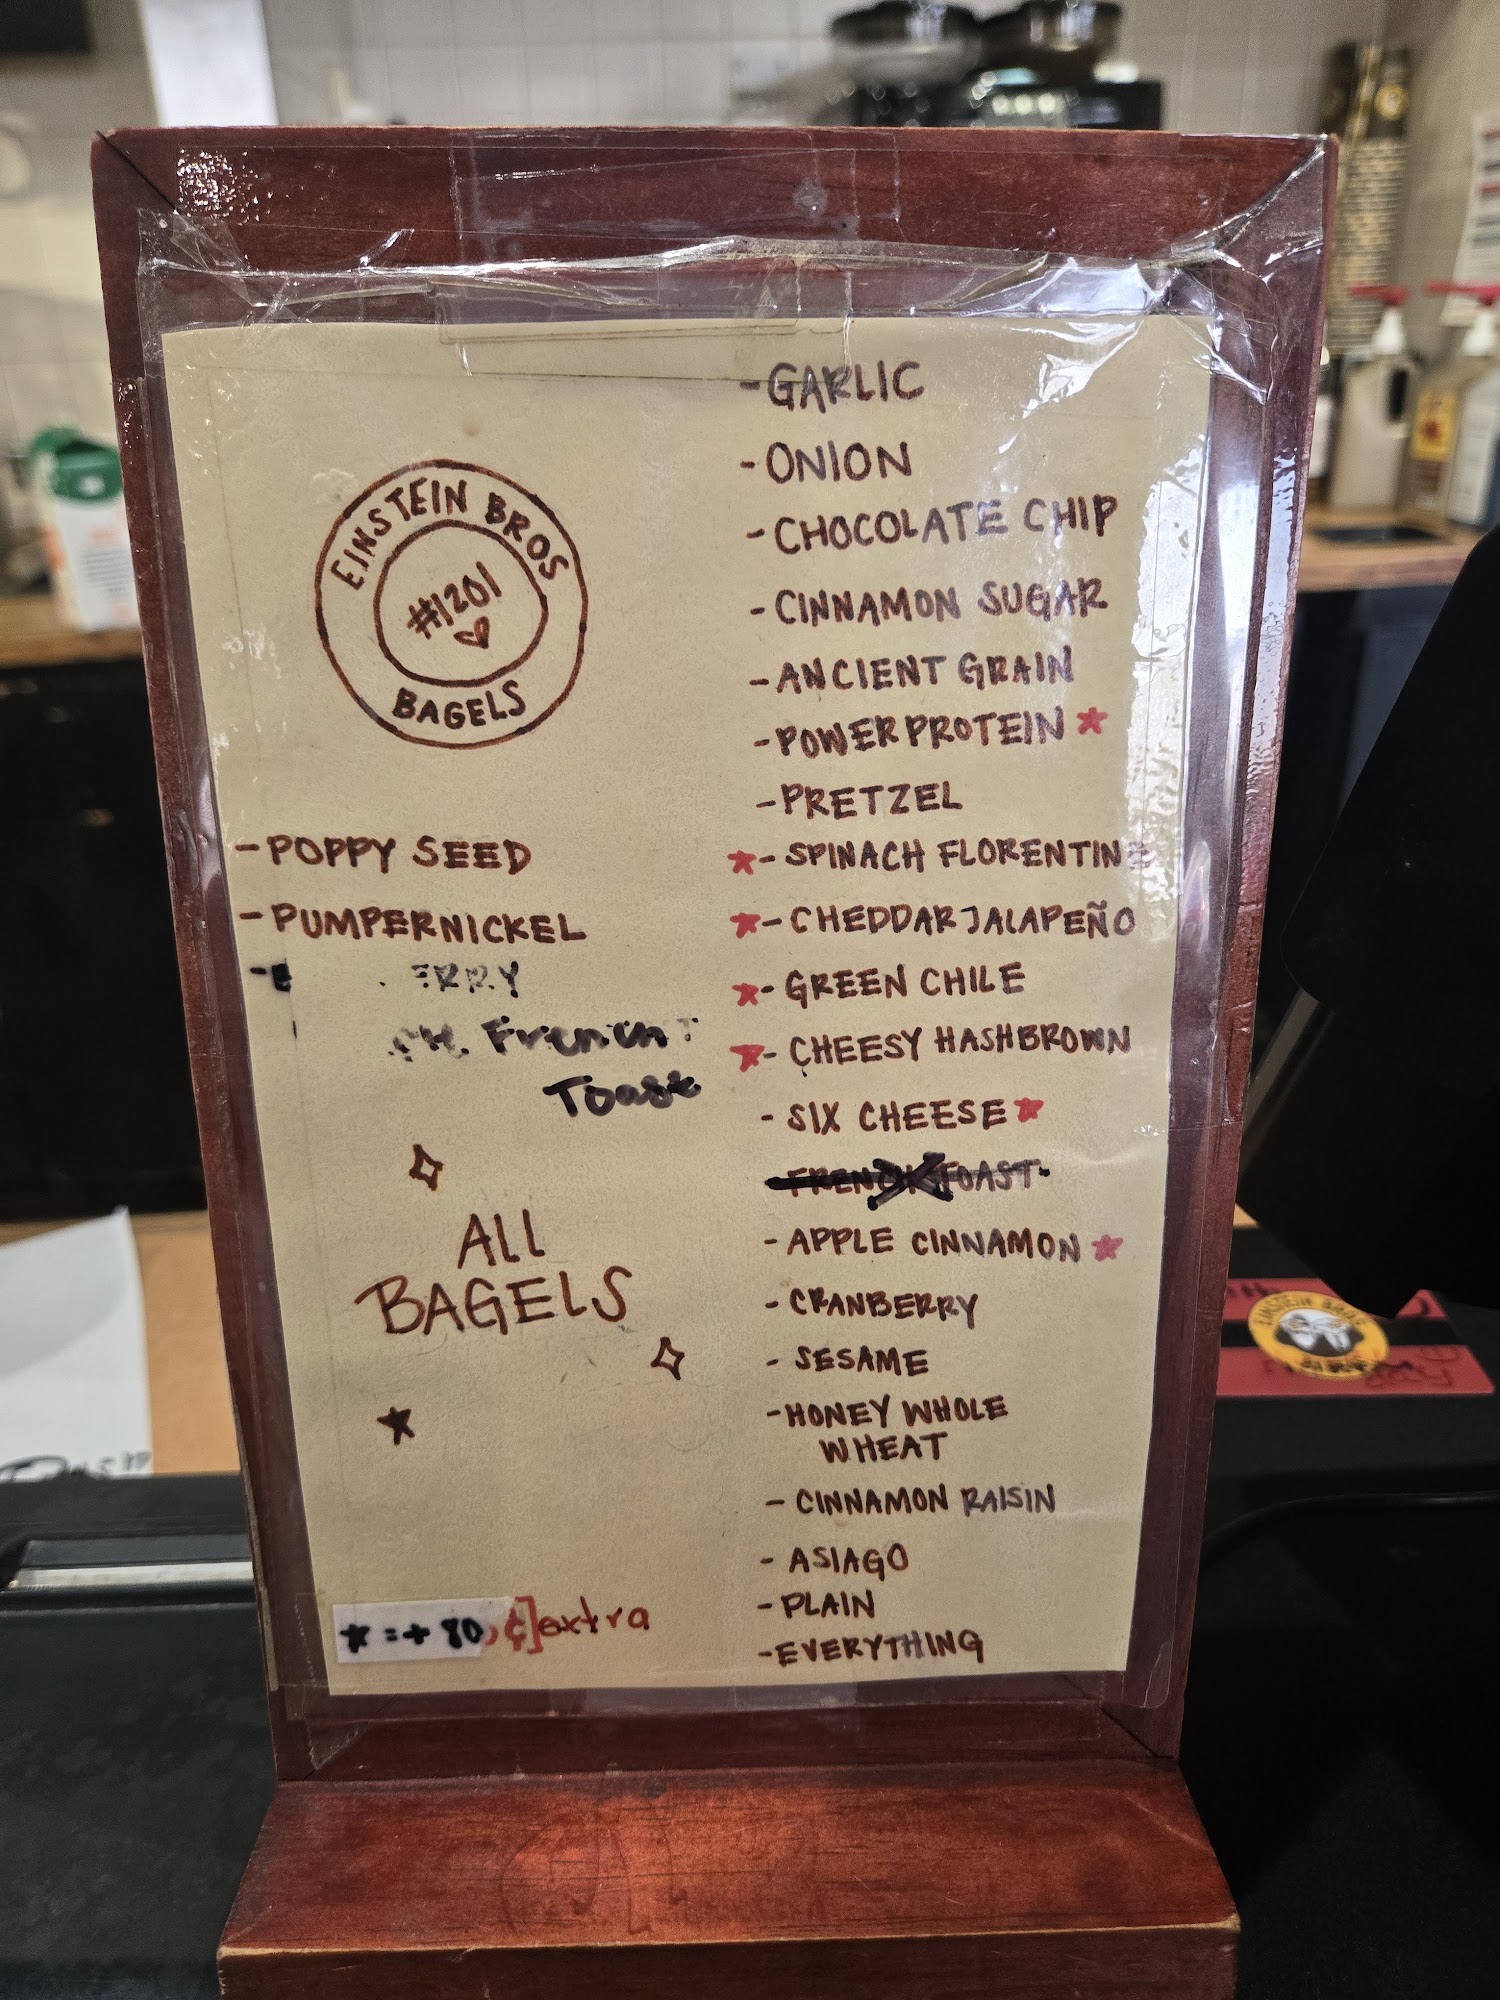 EINSTEIN BROS
#1201
BAGELS
- POPPY SEED
- PUMPERNICKEL
French
Toast
ALL
BAGELS
★ = + 80 ¢] extra
- GARLIC
- ONION
- CHOCOLATE CHIP
- CINNAMON SUGAR
- ANCIENT GRAIN
- POWER PROTEIN ★
- PRETZEL
★ - SPINACH FLORENTINE
★ - CHEDDAR JALAPEÑO
★ - GREEN CHILE
★ - CHEESY HASHBROWN
- SIX CHEESE ★
- FRENCH TOAST
- APPLE CINNAMON ★
- CRANBERRY
- SESAME
- HONEY WHOLE
WHEAT
- CINNAMON RAISIN
- ASIAGO
- PLAIN
- EVERYTHING
EINSTEIN BROS